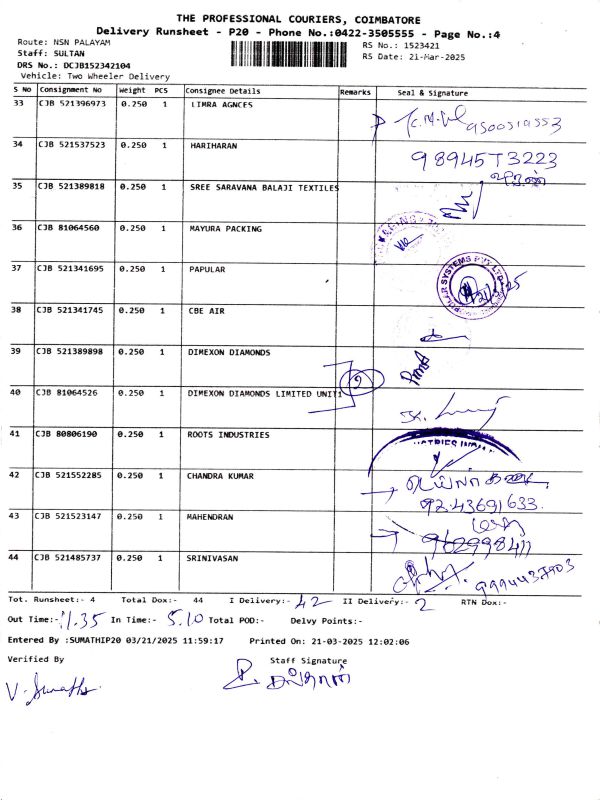 THE PROFESSIONAL COURIERS, COIMBATORE
Delivery Runsheet - P20 - Phone No.:0422-3505555 - Page No.:4
Route: NSN PALAYAM RS No.: 1523421
Staff: SULTAN RS Date: 21-Mar-2025
DRS No.: DCJB152342104
Vehicle: Two Wheeler Delivery
S No Consignment No Weight PCS Consignee Details Remarks Seal & Signature
33 CJB 521396973 0.250 1 LIMRA AGNCES 9500519553
34 CJB 521537523 0.250 1 HARIHARAN 98945T3223
35 CJB 521389818 0.250 1 SREE SARAVANA BALAJI TEXTILES
36 CJB 81064560 0.250 1 MAYURA PACKING
37 CJB 521341695 0.250 1 PAPULAR
38 CJB 521341745 0.250 1 CBE AIR
39 CJB 521389898 0.250 1 DIMEXON DIAMONDS
40 CJB 81064526 0.250 1 DIMEXON DIAMONDS LIMITED UNIT1 2
41 CJB 80806190 0.250 1 ROOTS INDUSTRIES
42 CJB 521552285 0.250 1 CHANDRA KUMAR 9243691633
43 CJB 521523147 0.250 1 MAHENDRAN 9629998411
44 CJB 521485737 0.250 1 SRINIVASAN 9994437903
Tot. Runsheet:- 4 Total Dox:- 44 I Delivery:- 42 II Delivery:- 2 RTN Dox:-
Out Time:- 11.35 In Time:- 5.10 Total POD:- Delvy Points:-
Entered By :SUMATHIP20 03/21/2025 11:59:17 Printed On: 21-03-2025 12:02:06
Verified By Staff Signature
V. Sumathi